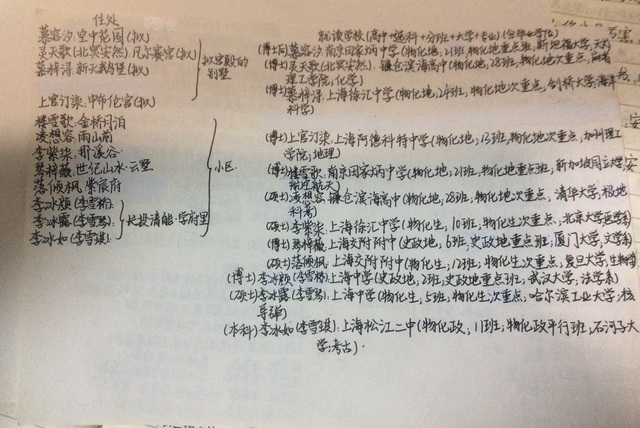 住处
慕容汐:空中花园(拟)
灵天歌(北冥安然):凡尔赛宫(拟)
慕梓浔:新天鹅堡(拟)
拟宫殿的
别墅
上官汀柒:中伟伦宫(拟)
楼雪歌:金桥同泊
凌想容:雨山前
李紫柒:那溪谷
琴梓薇:世纪山水·云墅
落倾枫:紫宸府
李冰颜(李雪柏)
李冰露(李雪琴)
李冰如(李雪琪)
长投清能·学府里
小区
就读学校(高中+选科+分班+大学+专业)(含毕业学位)
(博士后)慕容汐:南京田家炳中学(物化地,21班,物化地重点班,斯坦福大学,天文)
(博士)灵天歌(北冥安然):镰仓滨海高中(物化地,28班,物化地次重点,麻省
理工学院,化学)
(博士)慕梓浔:上海徐汇中学(物化地,24班,物化地次重点,剑桥大学,海洋
科学)
(博士)上官汀柒:上海阿德科特中学(物化地,13班,物化地次重点,加州理工
学院,地理)
(博士)楼雪歌:南京田家炳中学(物化地,21班,物化地重点班,新加坡国立大学,
航空航天)
(硕士)凌想容:镰仓滨海高中(物化地,28班,物化地次重点,清华大学,极地
科考)
(硕士)李紫柒:上海徐汇中学(物化生,10班,物化生次重点,北京大学医学系)
(博士)琴梓薇:上海交附附中(史政地,6班,史政地重点班,厦门大学,文学系)
(硕士)落倾枫:上海交附附中(物化生,12班,物化生次重点,复旦大学,生物学)
(博士)李冰颜(李雪柏):上海中学(史政地,2班,史政地重点班,武汉大学,法学系)
(硕士)李冰露(李雪琴):上海中学(物化生,5班,物化生次重点,哈尔滨工业大学,核
导弹)
(本科)李冰如(李雪琪):上海松江二中(物化政,11班,物化政平行班,石河子大
学,考古).